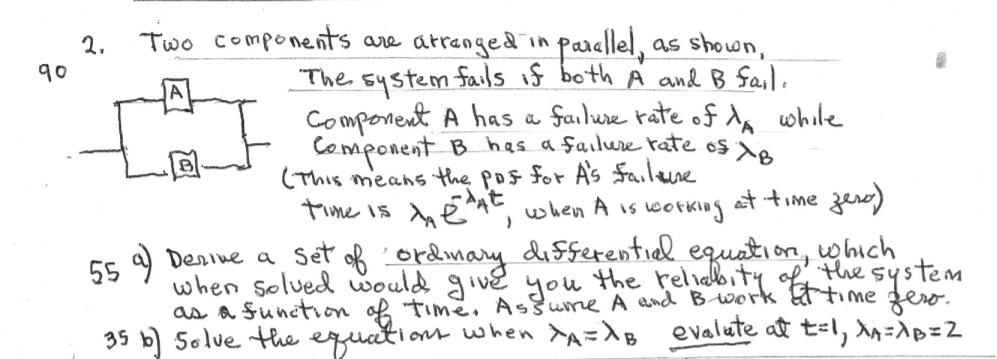 2. Two components are arranged in parallel, as shown,
90
The system fails if both A and B fail.
A
Component A has a failure rate of λ_A while
Component B has a failure rate of λ_B
B
(This means the pdf for A's failure
time is λ_A e^{-λ_A t}, when A is working at time zero)
55 a) Derive a set of ordinary differential equation, which
when solved would give you the reliability of the system
as a function of time. Assume A and B work at time zero.
35 b) Solve the equations when λ_A=λ_B evalute at t=1, λ_A=λ_B=2